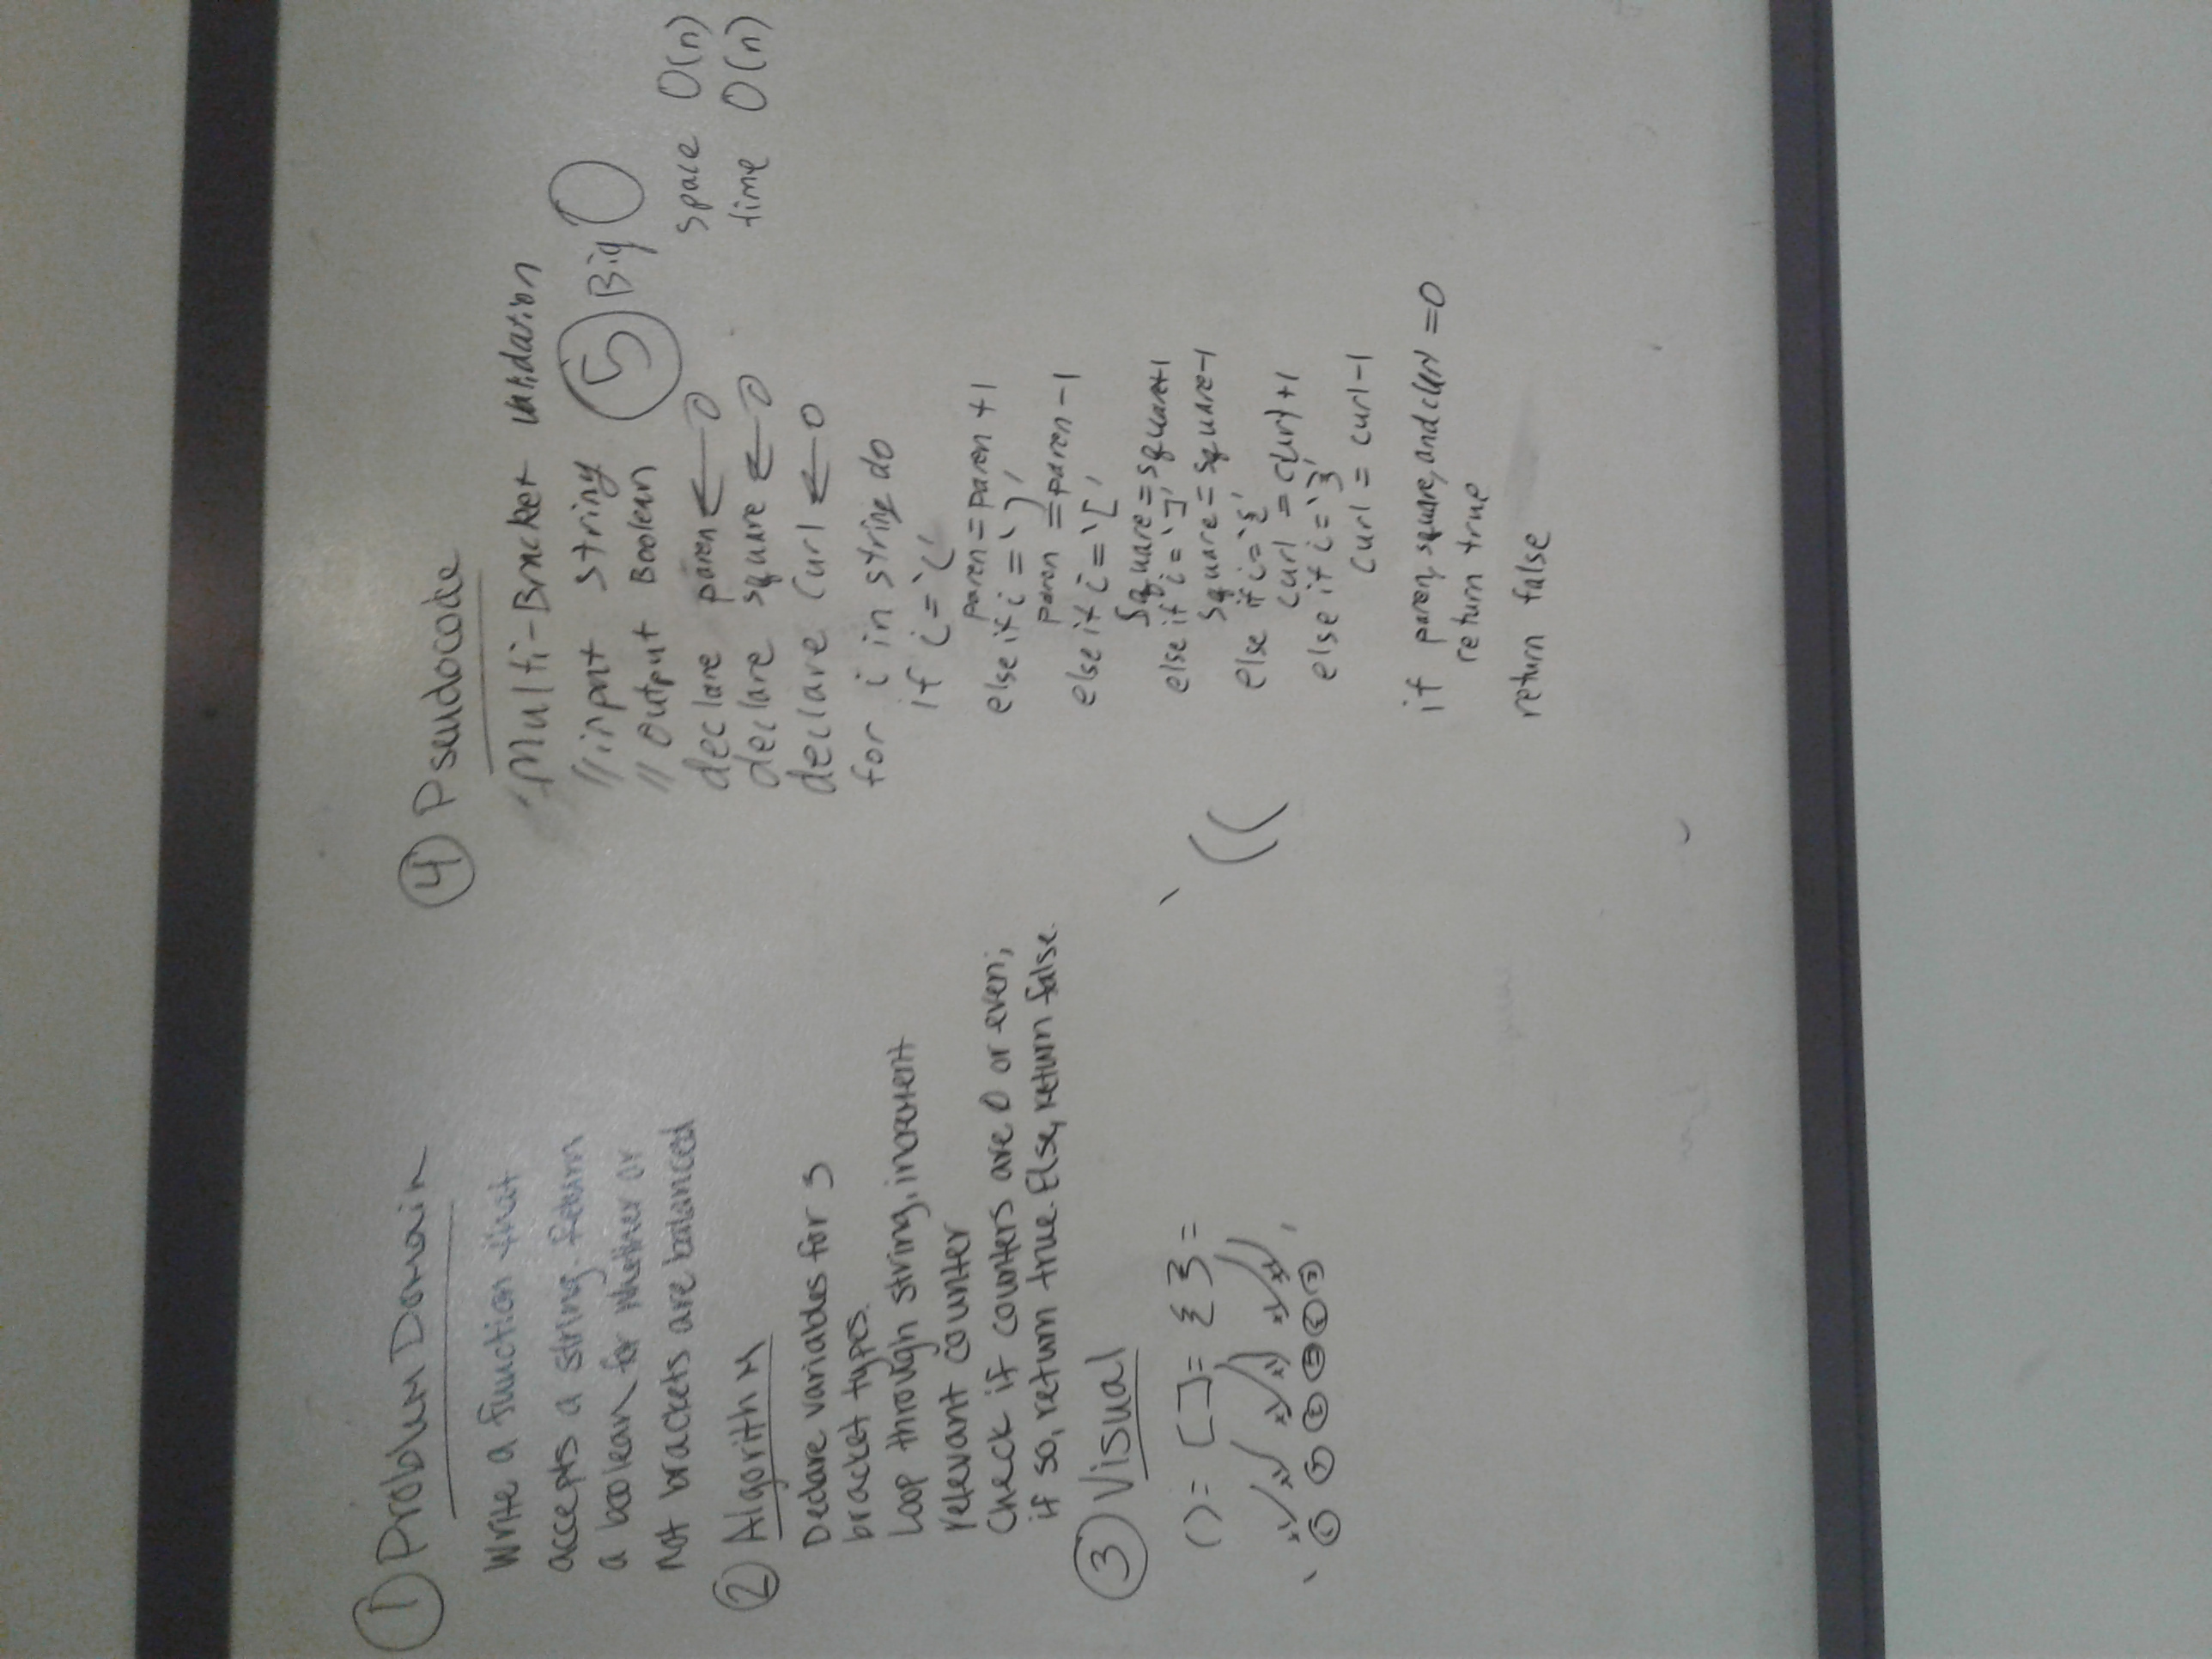 ① Problem Domain
Write a function that
accepts a string. Return
a boolean for whether or
not brackets are balanced
② Algorithm
Declare variables for 3
bracket types.
Loop through string, increment
relevant counter
Check if counters are 0 or even;
if so, return true. Else, return false.
③ Visual
()= []= {}=
④ Pseudocode
Multi-Bracket validation
// input string
// output Boolean
declare paren ← 0
declare square ← 0
declare curl ← 0
for i in string do
if i = '('
paren = paren + 1
else if i = ')'
paren = paren - 1
else if i = '['
square = square+1
else if i = ']'
square = square-1
else if i = '{'
curl = curl+1
else if i = '}'
curl = curl-1
if paren, square, and curl = 0
return true
return false
⑤ Big O
space O(n)
time O(n)
((